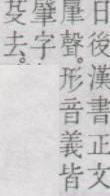 日後漢書正文
肁聲。形音義皆
肇字。
殳去。